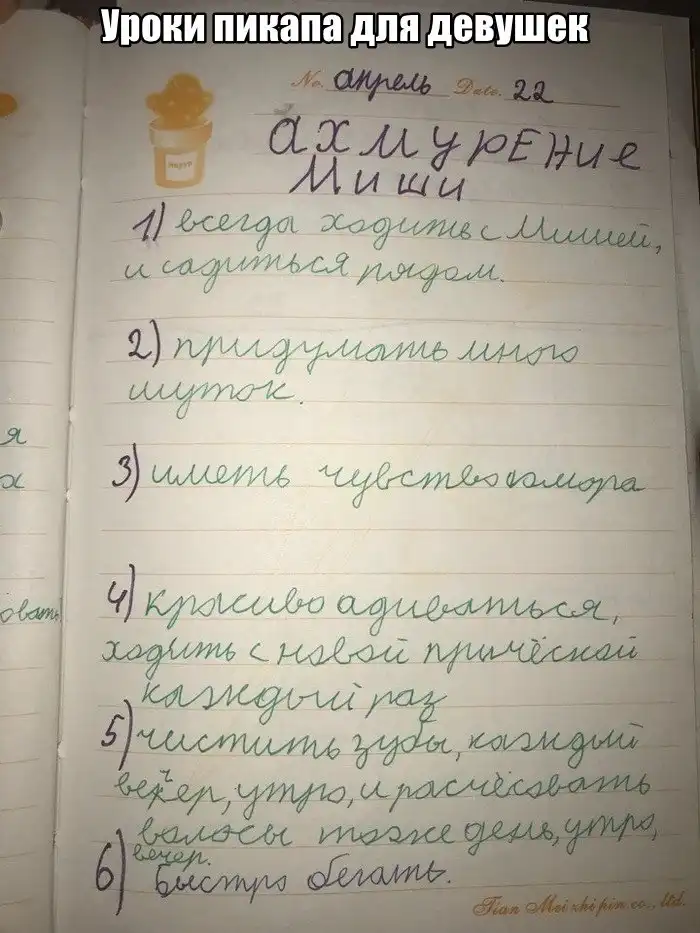 Уроки пикапа для девушек
No. апрель Date. 22
ахмурЕние
Миши
1) всегда ходить с Мишей,
и садиться рядом.
2) придумать много
шуток.
я
3) иметь чувство юмора
х
4) красиво адиваться,
овать
ходить с новой причёской
каждый раз
5) чистить зубы, каждый
вечер, утро, и расчёсовать
волосы тоже день, утро,
вечер.
6) Быстро бегать.
Tian Mei zhi pin co., ltd.